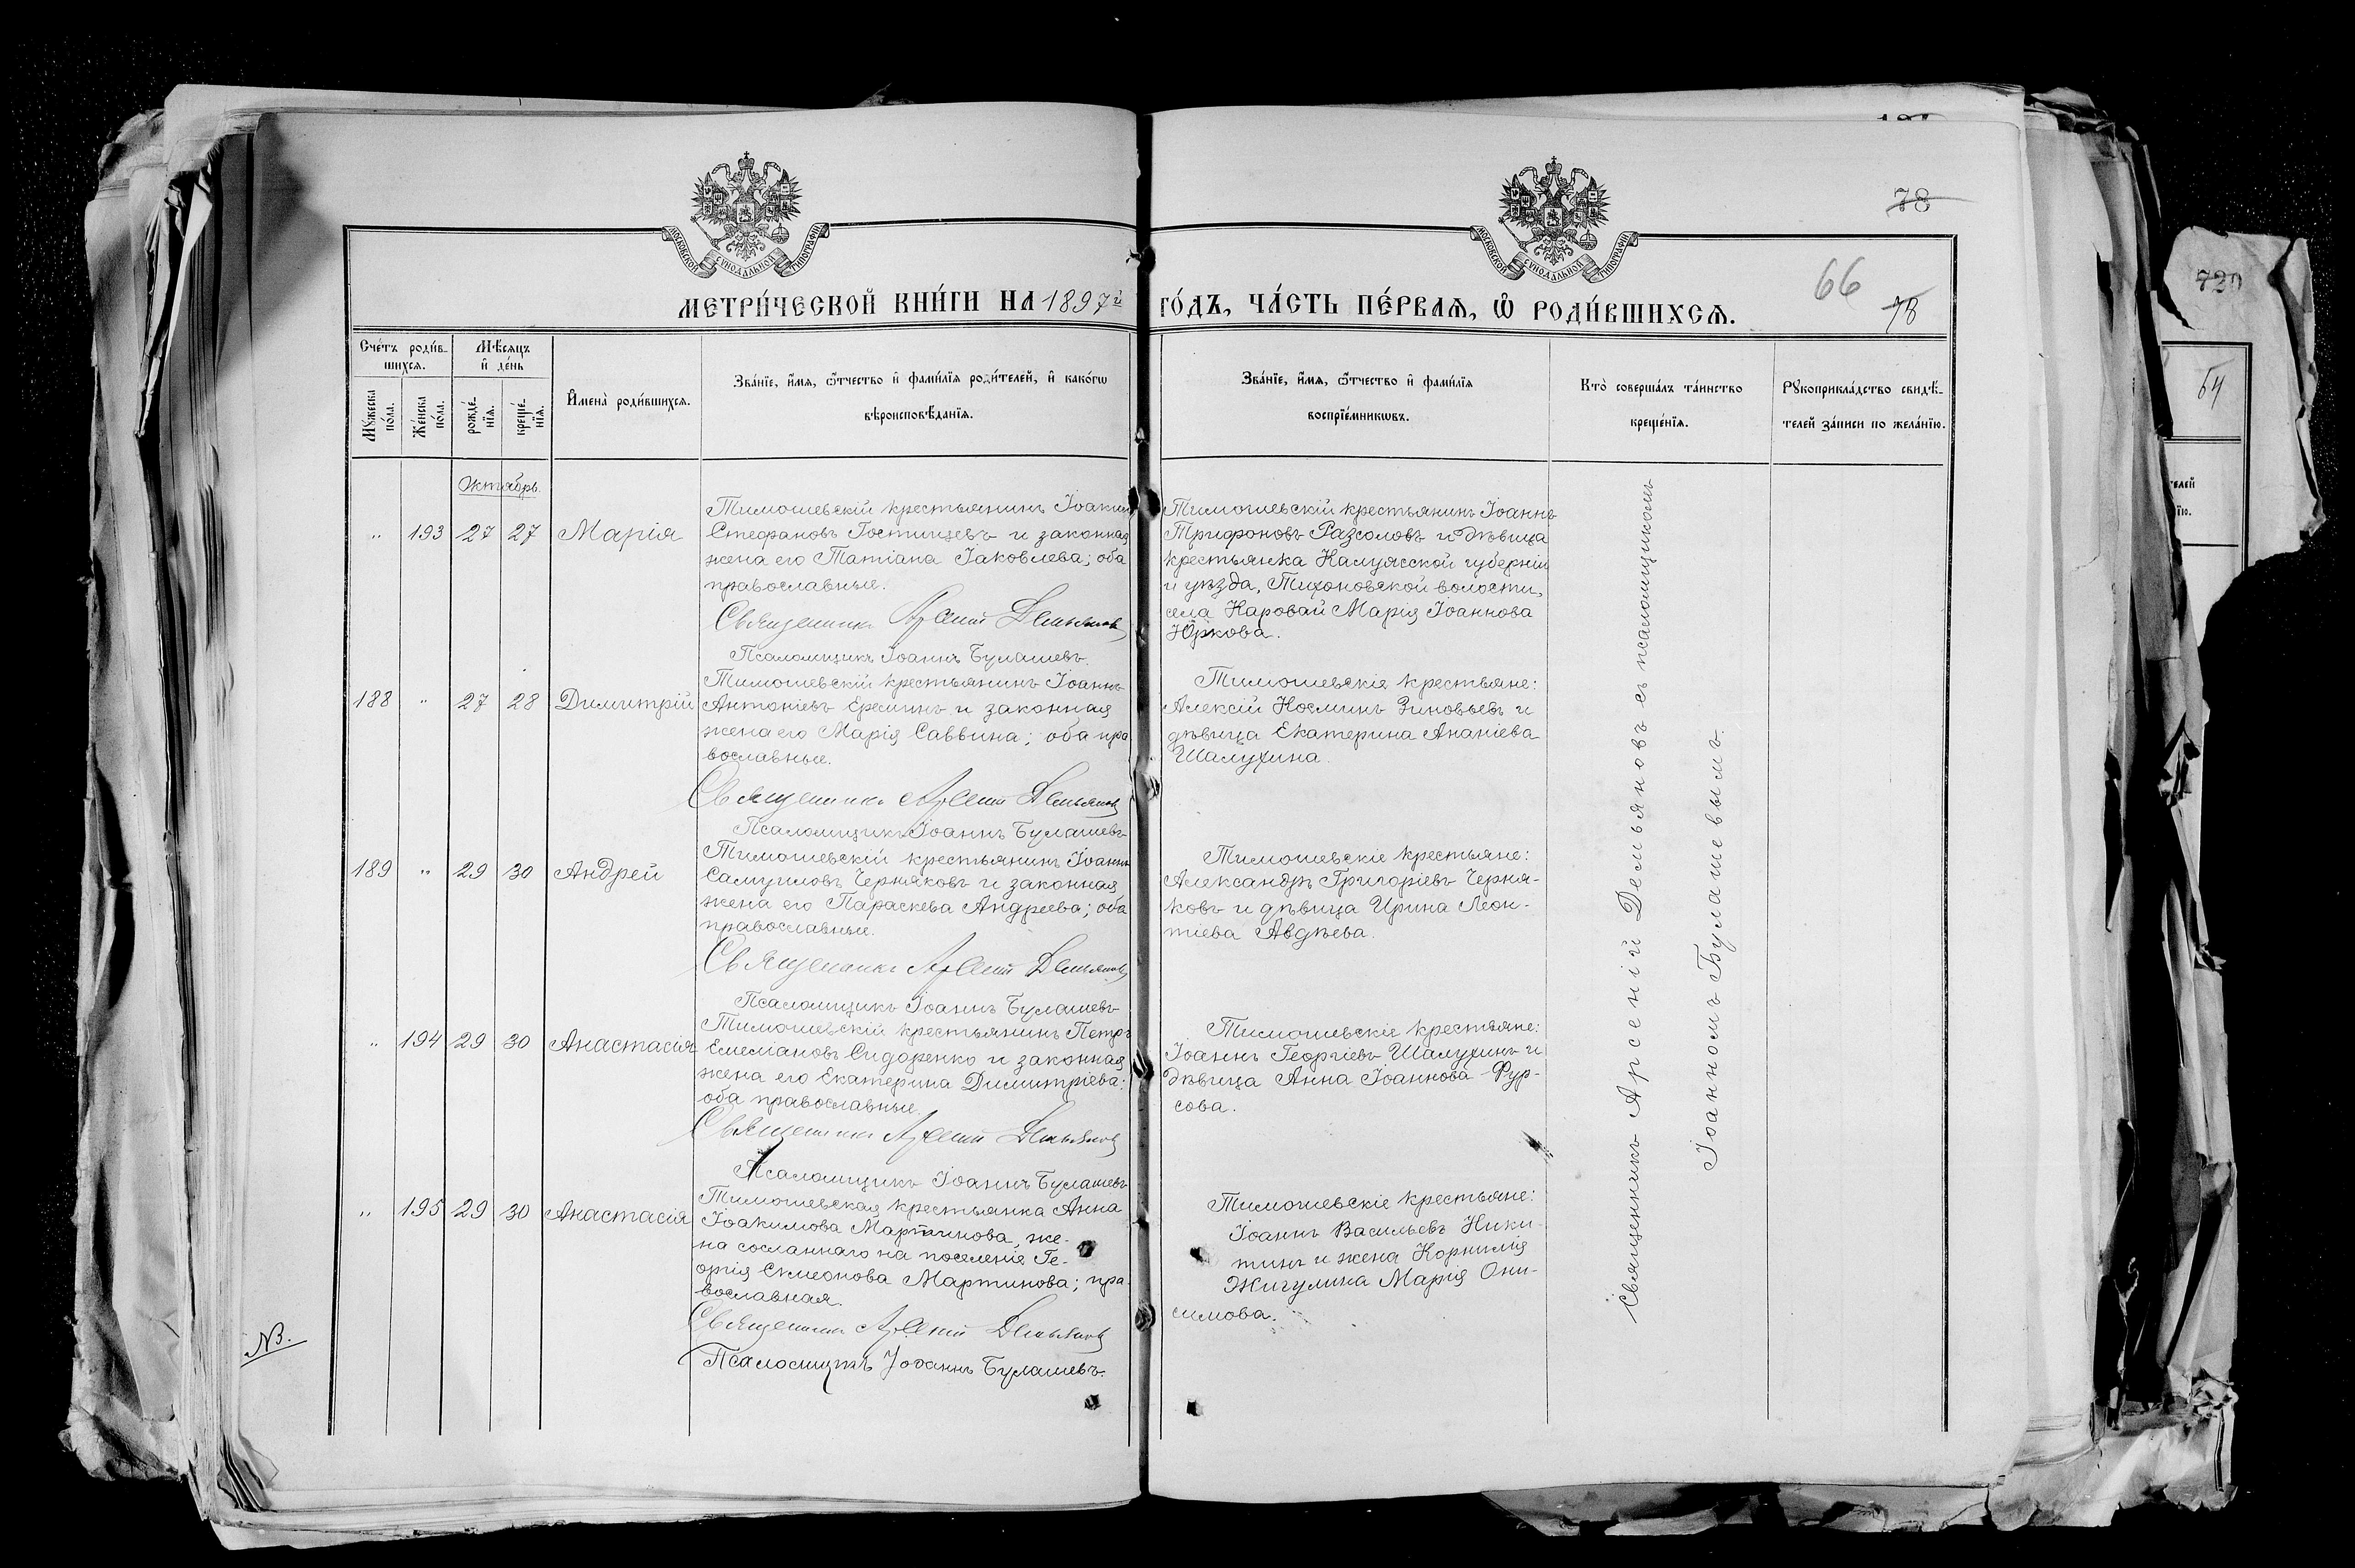 78
МОСКОВСКОЙ СѴНОДАЛЬНОЙ ТИПОГРАФІИ
МОСКОВСКОЙ СѴНОДАЛЬНОЙ ТИПОГРАФІИ
66
78
МЕТРИ́ЧЕСКОЙ КНИ́ГИ НА 1897й ГО́ДЪ, ЧА́СТЬ ПЕ́РВАЯ, Ѡ҆ РОДИ́ВШИХСЯ.
Сче́тъ роди́в-
шихся.
Мѣ́сяцъ
и҆ де́нь
Му́жеска
по́ла.
Же́нска
по́ла.
рожде́-
нїѧ.
креще́-
нїѧ.
И҆мена̀ роди́вшихся.
Зва́нїе, и҆́мя, ѻ҆́тчество и҆ фами́лїя роди́телей, и҆ како́гѡ
вѣроисповѣ́данїя.
Зва́нїе, и҆́мя, ѻ҆́тчество и҆ фами́лїя
воспрїе́мникѡвъ.
Кто̀ соверша́лъ та́инство
креще́нїя.
Рукоприкла́дство свидѣ́-
телей за́писи по жела́нїю.
Октябрь.
" 193 27 27 Марія
Тимошевскій крестьянинъ Іоаким
Стефановъ Гостищевъ и законная
жена его Татіана Іаковлева; оба
православные.
Священникъ Арсений Демьянов
Псаломщикъ Іоаннъ Булашевъ.
Тимошевскій крестьянинъ Іоаннъ
Трифоновъ Разсоловъ и дѣвица
крестьянка Калужской губерніи
и уѣзда, Тихоновской волости,
села Каровай Марія Іоаннова
Юркова.
188 " 27 28 Димитрій
Тимошевскій крестьянинъ Іоаннъ
Антоніевъ Ереминъ и законная
жена его Марія Саввина; оба пра
вославные.
Священникъ Арсений Демьянов
Псаломщикъ Іоаннъ Булашевъ
Тимошевскіе крестьяне:
Алексій Косминъ Зиновьевъ и
дѣвица Екатерина Ананіева
Шалухина.
189 " 29 30 Андрей
Тимошевскій крестьянинъ Іоаннъ
Самуиловъ Черняковъ и законная
жена его Параскева Андреева; оба
православные.
Священникъ Арсений Демьянов
Псаломщикъ Іоаннъ Булашевъ
Тимошевскіе крестьяне:
Александръ Григоріевъ Черня-
ковъ и дѣвица Ирина Леон-
тіева Авдѣева.
" 194 29 30 Анастасія
Тимошевскій крестьянинъ Петръ
Емеліановъ Сидоренко и законная
жена его Екатерина Димитріева;
оба православные.
Священникъ Арсений Демьянов
Псаломщикъ Іоаннъ Булашевъ
Тимошевскіе крестьяне:
Іоаннъ Георгіевъ Шалухинъ и
дѣвица Анна Іоаннова Фур-
сова.
" 195 29 30 Анастасія
Тимошевская крестьянка Анна
Іоакимова Мартинова, же-
на сосланнаго на поселеніе Ге-
оргія Симеонова Мартинова; пра-
вославная.
Священникъ Арсений Демьянов
Псаломщикъ Іоаннъ Булашевъ.
Тимошевскіе крестьяне:
Іоаннъ Васильевъ Ники-
тинъ и жена Корнилія
Жигулина Марія Они-
симова.
NB.
Священникъ Арсеній Демьяновъ съ псаломщикомъ
Іоанномъ Булашевымъ.
720
64
телей
їю.